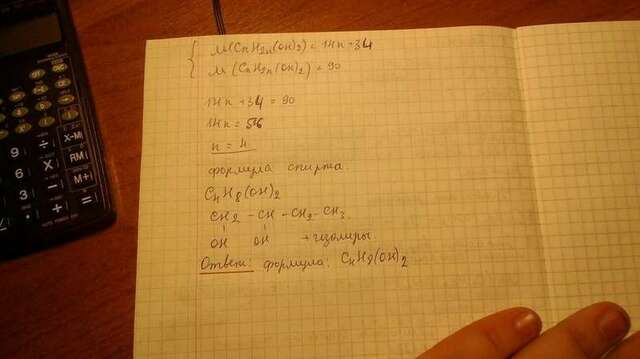 M(CnH2n(OH)2) = 14n + 34
M(CnH2n(OH)2) = 90
14n + 34 = 90
14n = 56
n = 4
формула спирта
C4H8(OH)2
CH2 - CH - CH2 - CH3
OH OH + изомеры
Ответ: формула: C4H8(OH)2
9 ÷ X→M
6 X RM
3 - M+
+ =